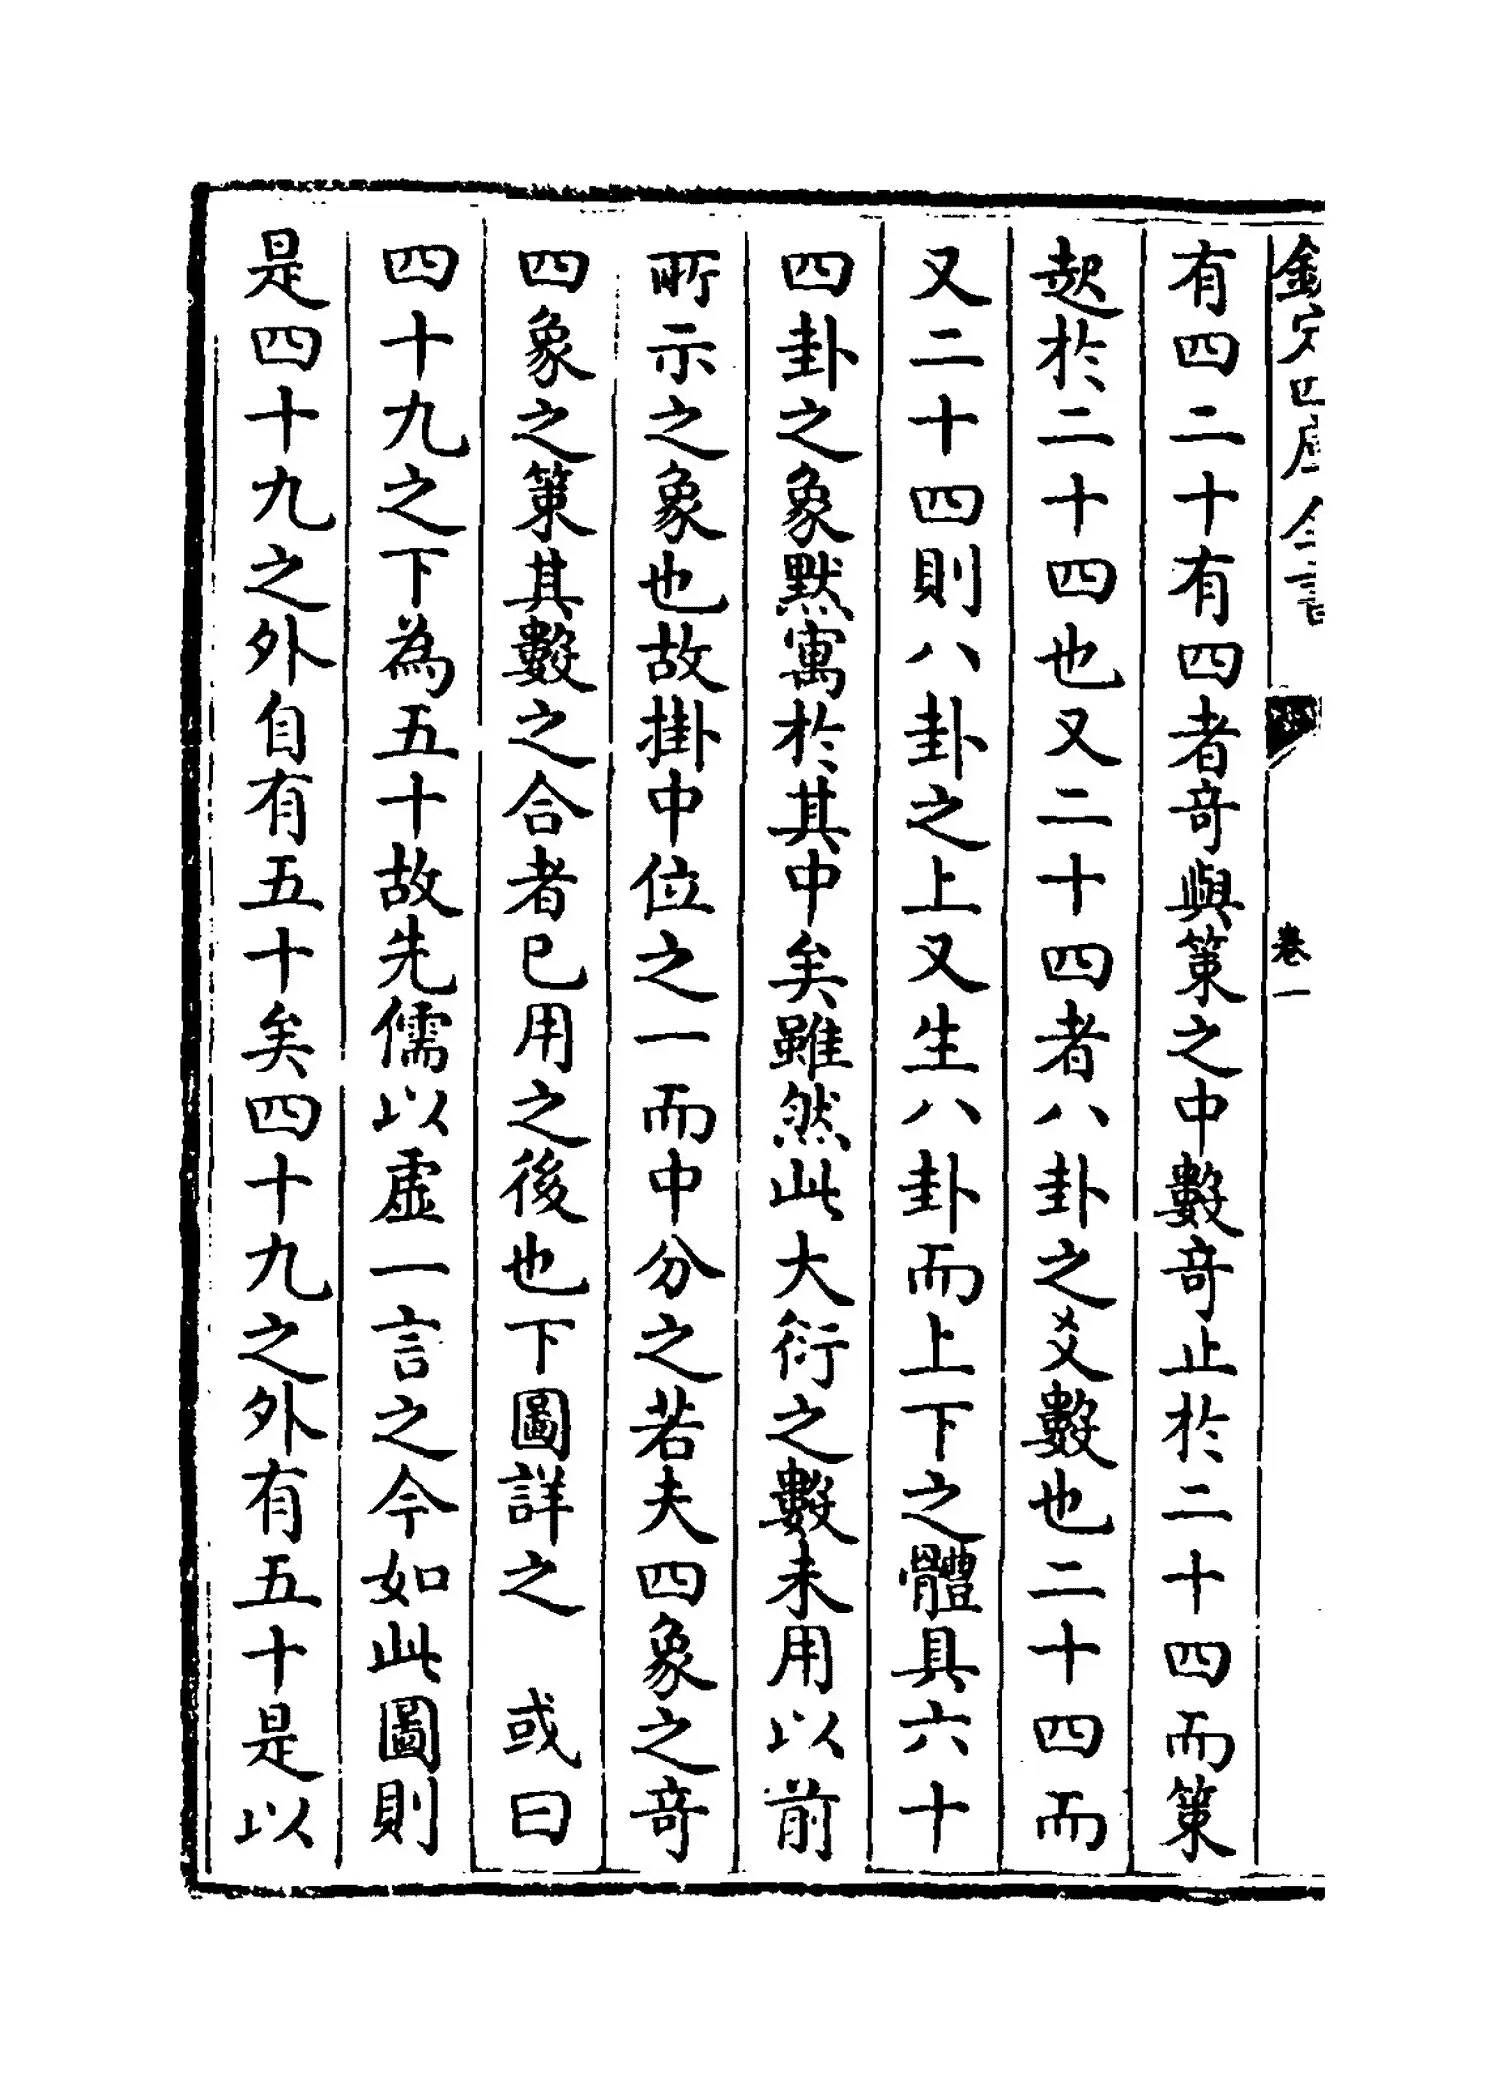 欽定四庫全書
卷一
有四二十有四者竒與策之中數竒止於二十四而策
起於二十四也又二十四者八卦之爻數也二十四而
又二十四則八卦之上又生八卦而上下之體具六十
四卦之象黙寓於其中矣雖然此大衍之數未用以前
所示之象也故掛中位之一而中分之若夫四象之竒
四象之策其數之合者已用之後也下圖詳之　或曰
四十九之下為五十故先儒以虚一言之今如此圖則
是四十九之外自有五十矣四十九之外有五十是以